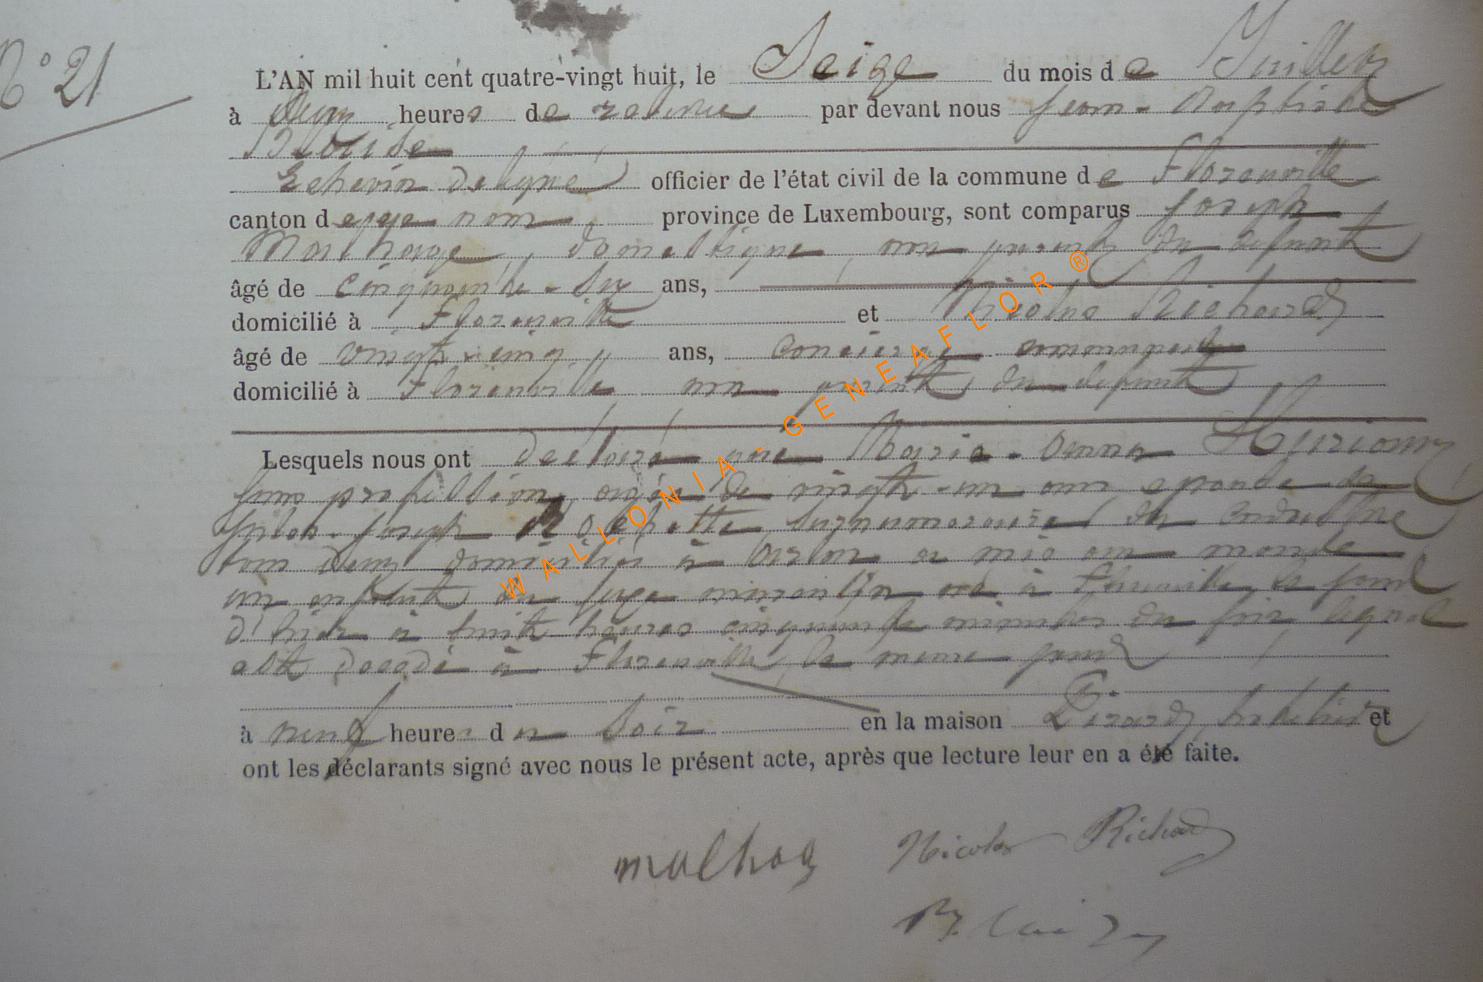 N° 21
L'AN mil huit cent quatre-vingt huit, le Seize du mois de Juillet
à deux heures de relevée par devant nous Jean-Baptiste
Blaise
Echevin délégué officier de l'état civil de la commune de Florenville
canton de ce nom, province de Luxembourg, sont comparus Joseph
domestique, non parent du defunt
âgé de cinquante-six ans,
domicilié à Florenville et Nicolas Richard
âgé de vingt-cinq ans, concierge communal
domicilié à Florenville non parent du defunt
Lesquels nous ont déclaré que Maria-Anna
sans profession, agée de vingt-un ans épouse de
Joseph surnumeraire du Cadastre
tous deux domiciliés à Arlon a mis au monde
un enfant du sexe masculin né à Florenville le jour
d'hier à huit heures cinquante minutes du soir lequel
est decedé à Florenville, le meme jour
à neuf heures du soir en la maison Pirard, hotelier et
ont les déclarants signé avec nous le présent acte, après que lecture leur en a été faite.
Nicolas Richard
WALLONIA-GENEAFLOR®